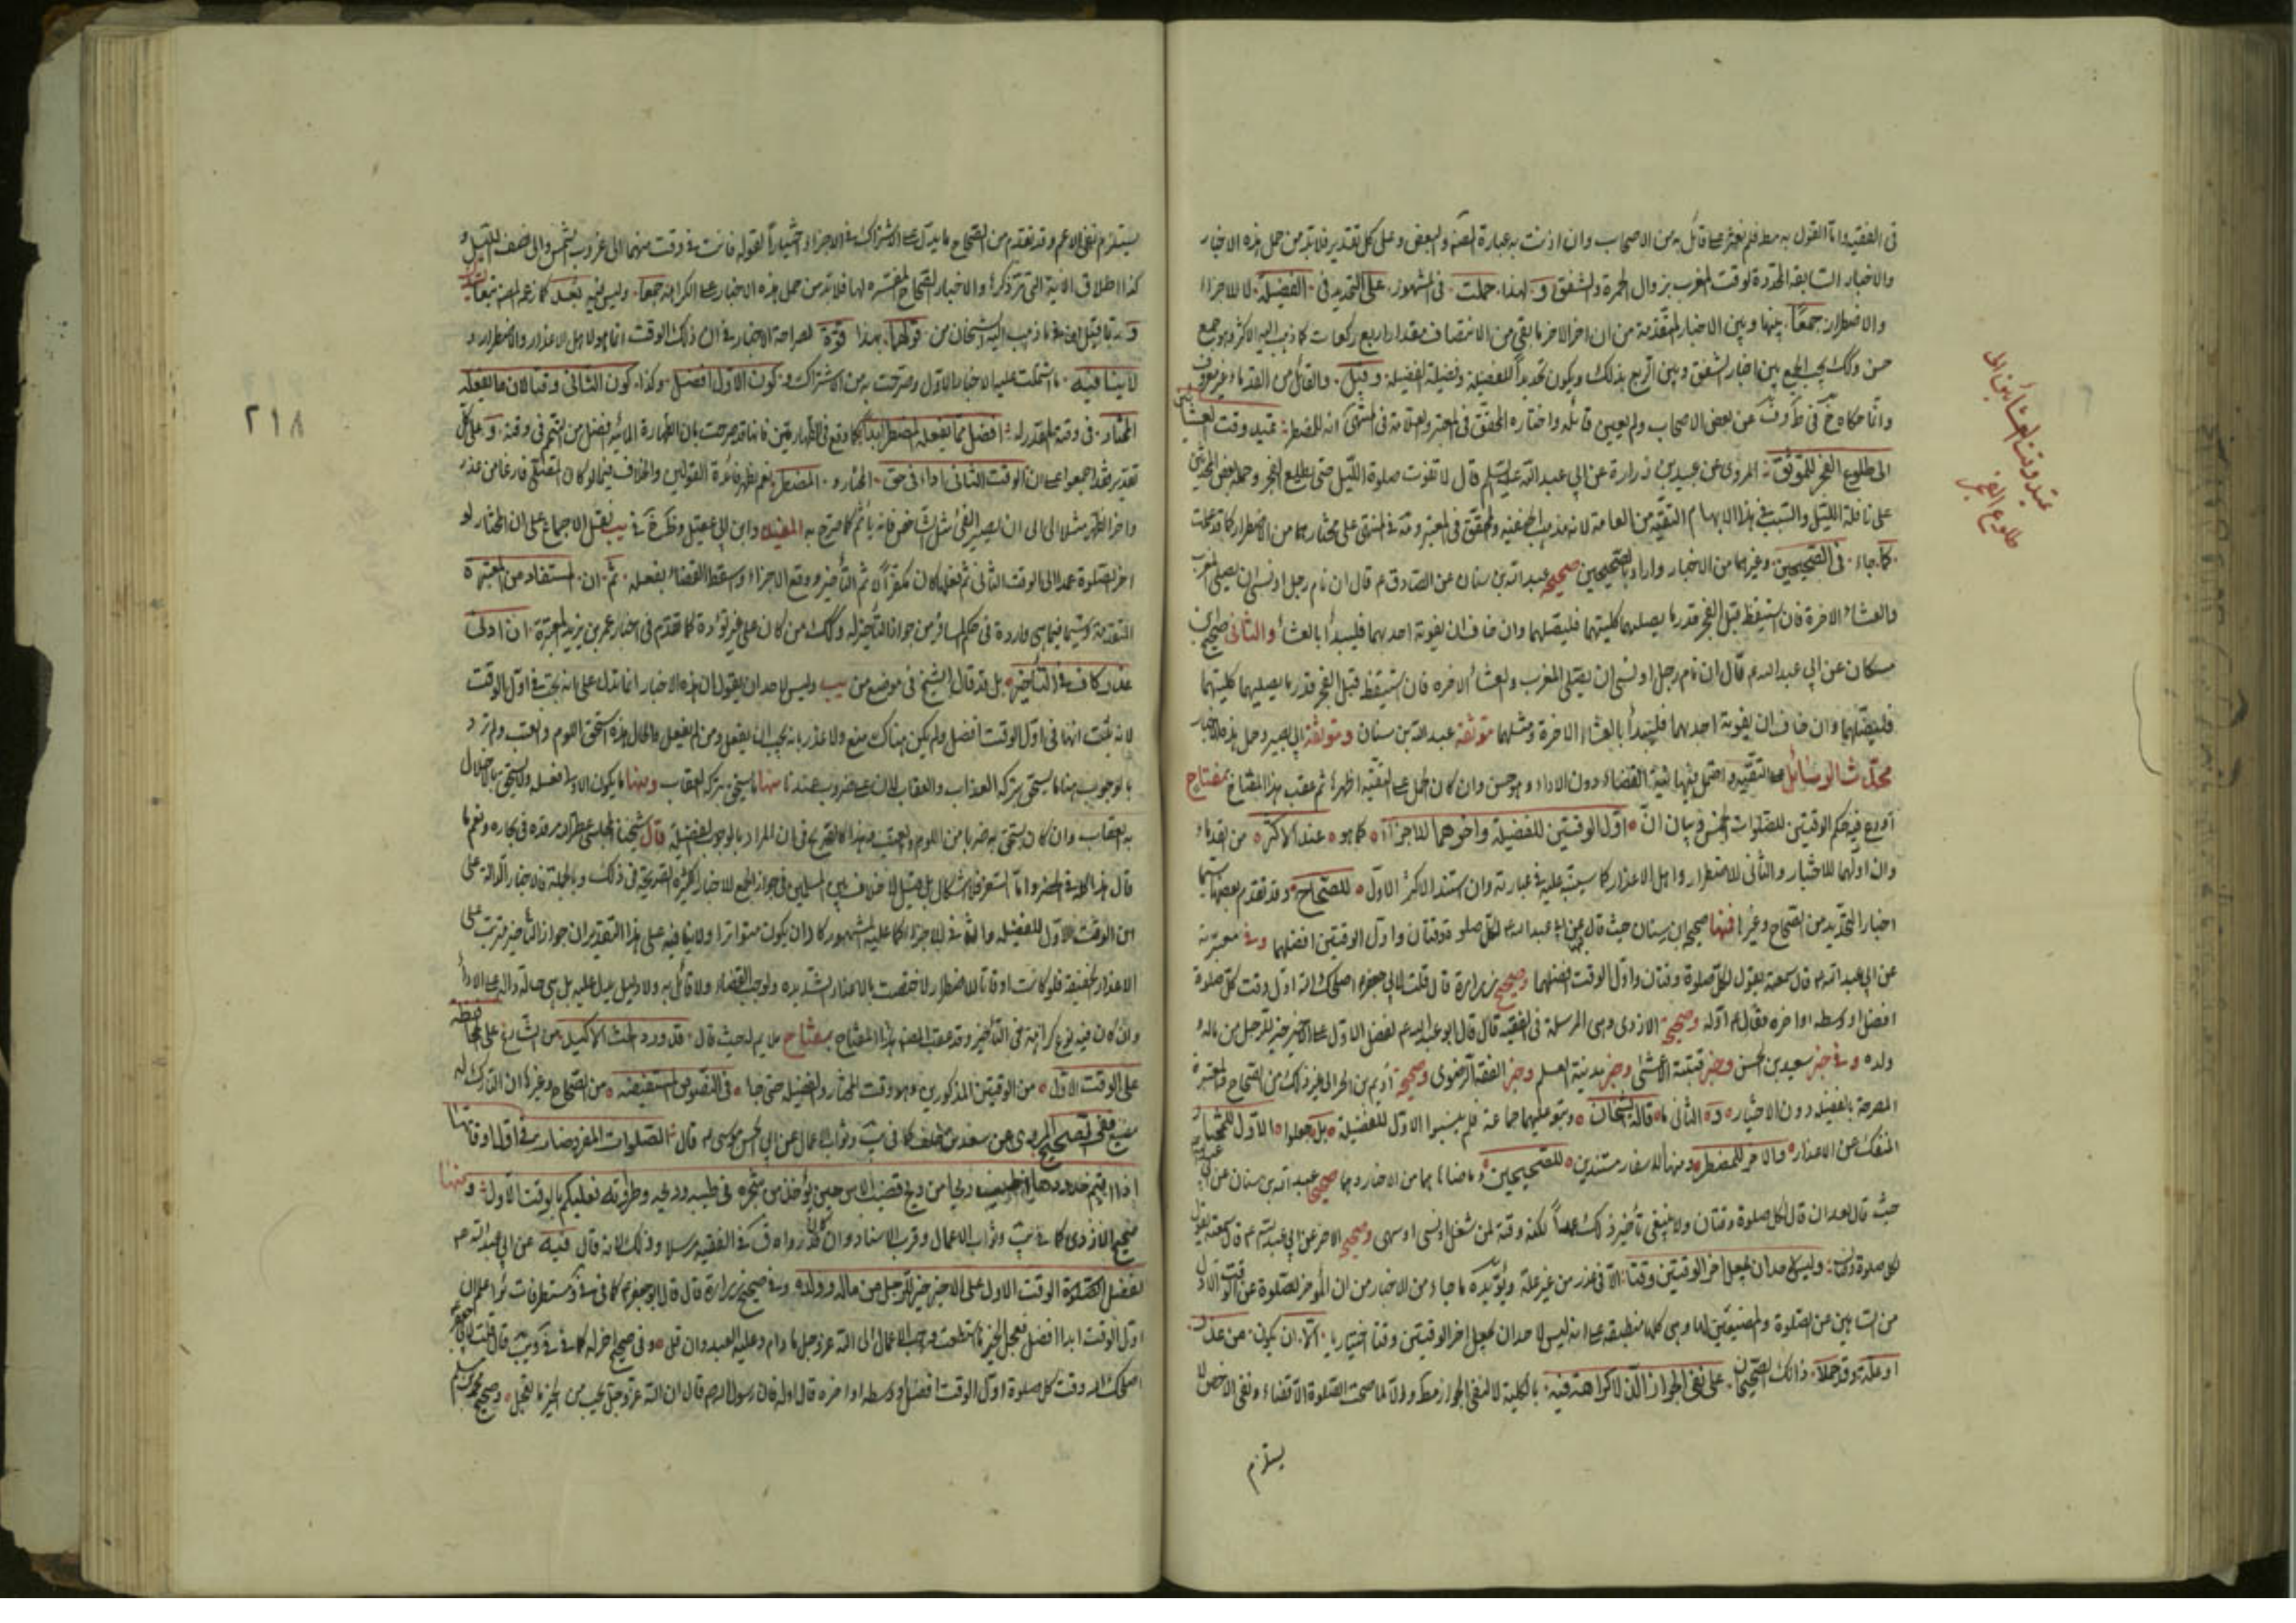 فى الفقيه واما القول به مط فلم نعثر على قائل به من الاصحاب وان اذنت به عبارة المصنف والبعض وعلى كل تقدير فلابد من حمل هذه الاخبار
والاخبار السابقة المحددة لوقت المغرب بزوال الحمرة والشفق و لهذا حملت فى المشهور على التحديد فى الفضيلة لا للاجزاء
والاضطرار جمعا بينها وبين الاخبار المتقدمة من ان اخر الاخر ما بقى من الانتصاف مقدار اربع ركعات كما ذهب اليه الاكثر وهو جمع
حسن وكذلك يجب الجمع بين اخبار الشفق وبين الربع بذلك ويكون تحديدا للفضيلة وفضيلة الفضيلة وقيل والقائل من القدماء غير معروف
وانما حكاه فى عن بعض الاصحاب ولم يعين قائله واختاره المحقق فى المعتبر والعلامة فى المنتهى انه للمضطر يمتد وقت العشائين
الى طلوع الفجر للموثق المروى عن عبيد بن زرارة عن ابى عبد الله عليه السلم قال لا تفوت صلوة الليل حتى يطلع الفجر وحمله بعض المحدثين
على نافلة الليل والسبب فى هذا الابهام التقية من العامة لانه مذهب والمحقق فى المعتبر فى المنتهى على مختارهما من الاضطرار كما قد حملت
كما جاء فى الصحيحين وغيرهما من الاخبار واراد بالصحيحين صحيح عبد الله بن سنان عن الصادق ع قال ان نام رجل او نسى ان يصلى المغرب
والعشاء الاخرة فان استيقظ قبل الفجر قدر ما يصليهما كليتهما فليصلهما وان خاف ان يفوته احديهما فليبدأ بالعشاء والثانى صحيح ابن
مسكان عن ابى عبد الله ع قال ان نام رجل او نسى ان يصلى المغرب والعشاء الاخره فان استيقظ قبل الفجر قدر ما يصليهما كليتهما
فليصلهما وان خاف ان يفوته احديهما فليبدأ بالعشاء الاخرة ومثلهما موثقة عبد الله بن سنان وموثقة ابى بصير وحمل هذه الاخبار
محدث الوسائل على التقية واحتمل فيها نية القضاء دون الاداء وهو حسن وان كان الحمل على التقية اظهر ثم عقب هذا المفتاح بمفتاح
اودع فيه حكم الوقتين للصلوات الخمس وبيان ان اول الوقتين للفضيلة واخرهما للاجزاء كما هو عند الاكثر من القدماء
وان اولهما للاختيار والثانى للاضطرار واهل الاعذار كما سينبه عليه فى عبارته وان استند الاكثر الاول للصحاح وقد تقدم بعضها سيما
اخبار التحديد من الصحاح وغيرها فمنها صحيح ابن سنان حيث قال عن ابى عبد الله ع لكل صلوة وقتان واول الوقتين افضلهما وفى معتبرته
عن ابى عبد الله ع قال سمعته يقول لكل صلوة وقتان واول الوقت افضلهما وصحيح زرارة قال قلت لابى جعفر ع اصلحك الله اول وقت كل صلوة
افضل او وسطه او اخره فقال ع اوله وصحيح الازدى وهى المرسلة فى الفقيه قال قال ابو عبد الله ع لفضل الاول على الاخير خير للرجل من ماله و
ولده وفى خبر سعيد بن الحسن وخبر قتيبة الاعشى وخبر مدينة العلم وخبر الفقه الرضوى وصحيح اديم بن الحر الى غير ذلك من الصحاح والمعتبرة
المصرحة بالفضيلة دون الاختيار والثانى ما قاله الشيخان وتبعهما جماعة فلم ينسبوا الاول للفضيلة بل جعلوا الاول للمختار
المنفك عن الاعذار والاخر للمضطر ومنها السفار مستندين للصحيحين وما ضاهاهما من الاخبار وهما صحيح عبد الله بن سنان عن ابى عبد الله
حيث قال بعد ان قال لكل صلوة وقتان ولا ينبغى تأخير ذلك عمدا لكنه وقت لمن شغل او نسى او سهى وصحيح الاخر عن ابى عبد الله ع قال سمعته يقول
لكل صلوة وقتان وليس لاحد ان يجعل اخر الوقتين وقتا الا فى عذر من غير علة ويؤيده ما جاء من الاخبار من ان المؤخر للصلوة عن الوقت الاول
من الساهين عن الصلوة والمضيعين لها وهى كلها منطبقة على انه ليس لاحد ان يجعل اخر الوقتين وقتا اختياريا الا ان يكون من عذر
او علة وقد حملا ذانك الصحيحان على نفى الجواز الذى لا كراهة فيه بالكلية لا لنفى الجواز مط والا لما صحت الصلوة الا قضاء ونفى الاخص لا
يستلزم
يمتد وقت العشائين الى
طلوع الفجر
يستلزم نفى الاعم وقد تقدم من الصحاح ما يدل على الاشتراك فى الاجزاء اختيارا لقوله فانت فى وقت منهما الى غروب الشمس والى نصف الليل و
كذا اطلاق الاية التى مر ذكرها والاخبار الصحاح المفسره لها فلابد من حمل هذه الاخبار على الكراهة جمعا وليس فيه بعد كما زعم المصنف
وربما قيل فى ما ذهب اليه الشيخان من قولهما بهذا قوة لصراحة الاخبار فى ان ذلك الوقت انما هو لاهل الاعذار والاضطرار و
لا ينافيه ما اشتملت عليه الاخبار الاول وصرحت به من الاشتراك و كون الاول افضل وكذا كون الثانى وقتا لان ما يفعله
المختار فى وقته المقدر له افضل مما يفعله المضطر ابدا كما وقع فى الطهارتين فانها قد صرحت بان الطهارة المائية افضل من التيمم فى وقته وعلى كل
تقدير فقد اجمعوا على ان الوقت الثانى اداء فى حق المختار و المضطر نعم يظهر فائدة القولين والخلاف فيما لو كان المصلى فارغا من عذر
واخر الظهر مثلا الى ان يصير الفئ مثل الشاخص فانه يأثم كما صرح به المفيد وابن ابى عقيل فى يب نقل الاجماع على ان المختار لو
اخر الصلوة عمدا الى الوقت الثانى ثم فعلها كان الاثم التأخير ووقع الاجزاء وسقط القضاء بفعله ثم ان المستفاد من المعتبرة
المتقدمة سيما فيما هى واردة فى حكم المسافر من جواز التأخير له وكذلك من كان على غير تؤدة كما تقدم فى اخبار عمر بن يزيد المعتبرة ان ادنى
عذر كاف فى التأخير بل قد قال الشيخ فى موضع من يب وليس لاحد ان يقول ان هذه الاخبار انما تدل على انه يجب فى اول الوقت
لانه اذا ثبت انها فى اول الوقت افضل ولم يكن هناك منع ولا عذر فانه يجب ان يفعل ومن لم يفعل والحال هذه استحق اللوم والعتب ولم نرد
بالوجوب هنا ما يستحق بتركه العذاب والعقاب لان على ضروب عندنا منها ما يستحق بتركه العقاب ومنها ما يكون الاولى فعله ولا يستحق بالاخلال
به العقاب وان كان يستحق به ضربا من اللوم والعتب وهذا كالصريح فى ان المراد بالوجوب الفضيلة قال شيخنا المجلسى عطر الله مرقده فى بحاره ونعم ما
قال هذا كله فى الحضر واما السفر فلا اشكال بل قيل لا خلاف بين المسلمين فى جواز الجمع للاخبار الكثيرة الصريحة فى ذلك وبالجملة فالاخبار الدالة على
ان الوقت الاول للفضيلة والثانى للاجزاء كما عليه المشهور كاد ان يكون متواترا ولا ينافيه على هذا التقدير ان جواز التأخير مترتب على
الاعذار الخفيفة فلو كانت اوقاتا للاضطرار لاختصت بالاعذار الشديدة ولوجب القضاء ولا قائل به ولا دليل يدل عليه بل هى صالحة دالة على الاداء
وان كان فيه نوع كراهة فى التأخير وقد عقب المصنف هذا المفتاح بمفتاح ملايم له حيث قال قد ورد الحث الاكيد من الشارع على المحافظة
على الوقت الاول من الوقتين المذكورين وهو وقت المختار والفضيلة حتى جاء فى النصوص المستفيضة من الصحاح وغيرها ان التارك له
مضيع ففى الصحيح المروى عن سعد بن خلف كما فى يب وثواب الاعمال عن ابى الحسن موسى ع قال الصلوات المفروضات فى اول اوقاتها
اذا اقيم حدودها اطيب ريحا من ريح قضيب الاس حين يؤخذ من شجره فى طيبه وريحه وطراوته فعليكم بالوقت الاول ومنها
صحيح الازدى كما فى يب وثواب الاعمال وقرب الاسناد وان كان قد رواه ق فى الفقيه مرسلا وذلك لانه قال فيه عن ابى عبد الله ع
لفضل الوقت الاول على الاخير خير للرجل من ماله وولده وفى صحيح زرارة قال قال ابو جعفر ع كما فى ومستطرفات ئر اعلم ان
اول الوقت ابدا افضل فعجل الخير ما استطعت واحب الاعمال الى الله عز وجل ما دام عليه العبد وان قل وفى صحيح اخر له كما فى يب قال قلت لابى جعفر ع
اصلحك الله وقت كل صلوة اول الوقت افضل او وسطه او اخره قال اوله قال رسول الله ص قال ان الله عز وجل يحب من الخير ما يعجل وصحيح محمد بن مسلم
٢١٨